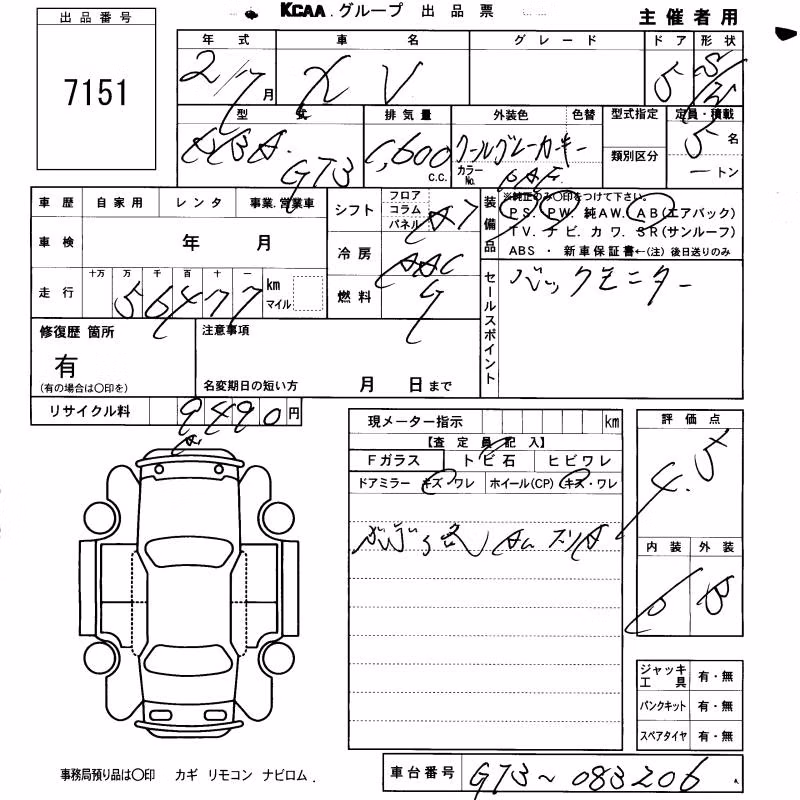 KCAA.グループ 出品票
主催者用
出品番号
7151
年式 車名 グレード ドア 形状
2/7月 XV 5 S/W
型式 排気量 外装色 色替 型式指定 定員・積載
GT3 1,600 c.c. クールグレーカーキー カラーNo. 類別区分 5名
ートン
車歴 自家用 レンタ 事業.営業車
シフト フロア コラム パネル A7
装備品 ※純正のみ○印をつけて下さい。
PS. PW. 純AW. AB(エアバック)
TV. ナビ. カワ. SR(サンルーフ)
ABS ・ 新車保証書←(注) 後日送りのみ
車検 年 月
冷房 AAC
走行 十万 万 千 百 十 一
56477 km マイル
燃料 G
セールスポイント バックモニター
修復歴 箇所
有
(有の場合は○印を)
注意事項
名変期日の短い方 月 日まで
リサイクル料 9490円
現メーター指示 km
【査定員記入】
Fガラス トビ石 ヒビワレ
ドアミラー キズ ワレ ホイール(CP) キズ・ワレ
評価点
4.5
内装 外装
B
ジャッキ工具 有・無
パンクキット 有・無
スペアタイヤ 有・無
事務局預り品は○印 カギ リモコン ナビロム.
車台番号 GT3〜083206